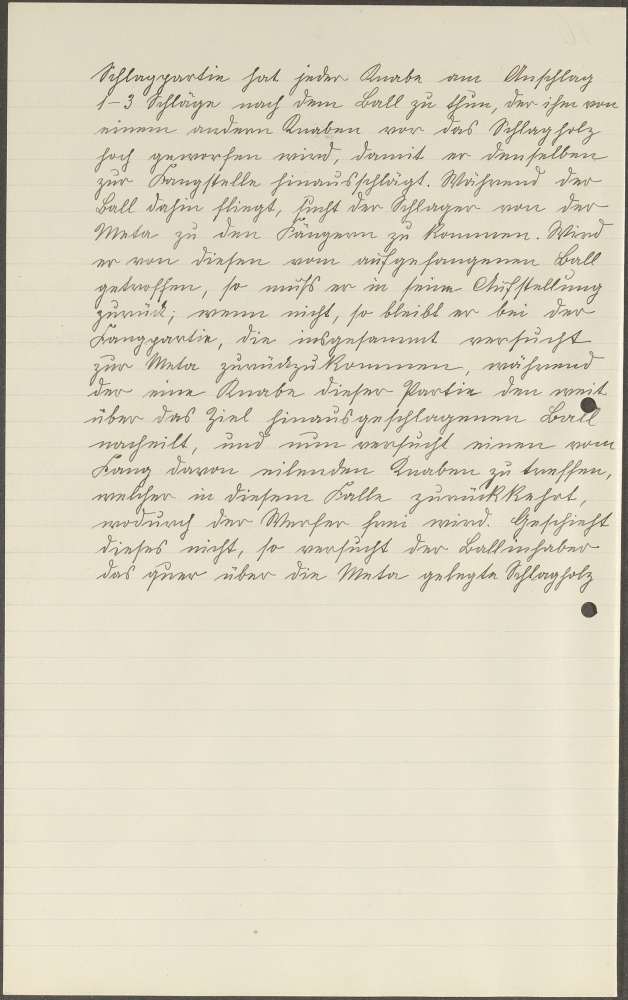 Schlagpartie hat jeder Knabe am Anschlag
1-3 Schläge nach dem Ball zu thun, der ihm von
einem andern Knaben vor das Schlagholz
hoch geworfen wird, damit er denselben
zur Fangstelle hinausschlägt. Während der
Ball dahin fliegt, sucht der Schläger von der
Meta zu den Fängern zu kommen. Wird
er von diesen vom aufgefangenen Ball
getroffen, so muß er in seine Aufstellung
zurück; wenn nicht, so bleibt er bei der
Fangpartie, die insgesammt versucht
zur Meta zurückzukommen, während
der eine Knabe dieser Partie den weit
über das Ziel hinausgeschlagenen Ball
nacheilt, und nun versucht einen vom
Fang davon eilenden Knaben zu treffen,
welcher in diesem Falle zurückkehrt,
wodurch der Werfer frei wird. Geschieht
dieses nicht, so versucht der Ballinhaber
das quer über die Meta gelegte Schlagholz